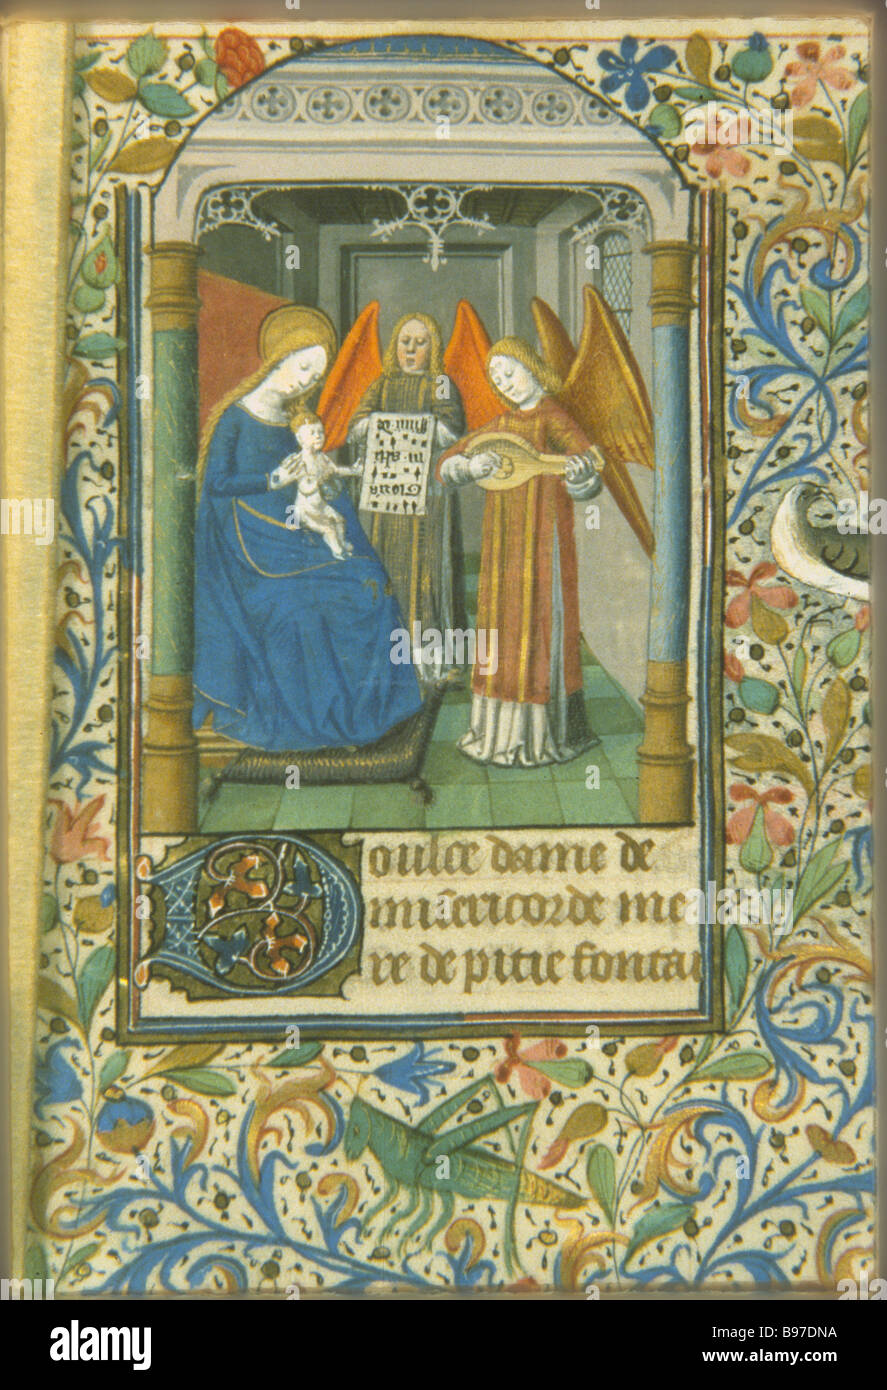 Gloria
in · alti
Doulce dame de
misericorde me
re de pitie fontai
alamy
Image ID: B97DNA
www.alamy.com